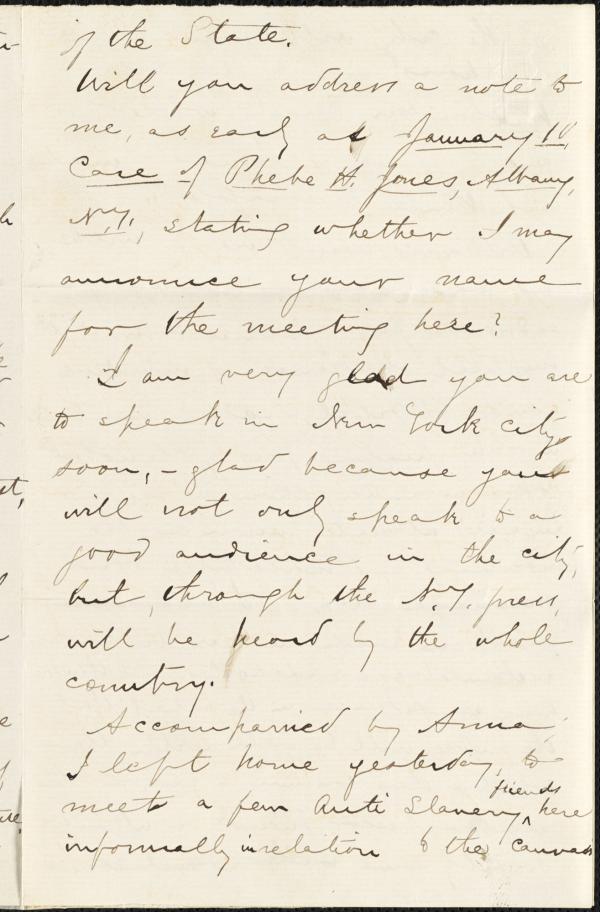 of the State.
Will you address a note to
me, as early as January 10,
Care of Phebe H. Jones, Albany,
N.Y., stating whether I may
announce your name
for the meeting here?
I am very glad you are
to speak in New York city
soon, – glad because you
will not only speak to a
good audience in the city,
but, through the N.Y. press,
will be heard by the whole
country.
Accompanied by Anna,
I left home yesterday, to
friends
meet a few Anti Slavery ^ here
informally in relation to the canvass